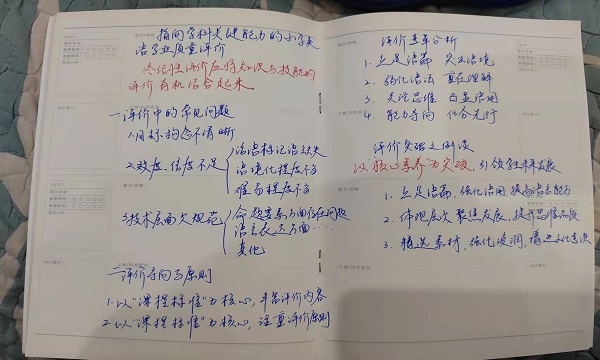 指向学科关键能力的小学英
语学业质量评价
终结性评价应将知识与技能的
评价有机结合起来.
一评价中的常见问题
1.目标构念不清晰
2.效度、信度不足
语言标记语缺失
语境化程度不高
难易程度不合
3.技术层面欠规范
命题要素方面存在问题
语言表达方面…
其他
一评价导向与原则
1.以“课程标准”为核心,丰富评价内容
2.以“课程标准”为核心,注重评价原则
评价变革分析
1. 立足语篇 突出语境
2. 强化语法 真在理解
3. 关注思维 凸显语用
4. 能力导向 任务先行
评价突破之例谈
以“核心素养”为突破,引领学生未来发展
1. 立足语篇,强化语用,提高语言能力
2. 体现层次 聚焦发展,提升思维品质
3. 精选素材,强化 渗透文化意识